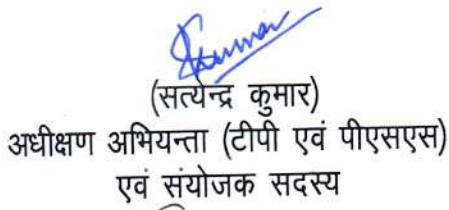 (सत्येन्द्र कुमार)
अधीक्षण अभियन्ता (टीपी एवं पीएसएस)
एवं संयोजक सदस्य